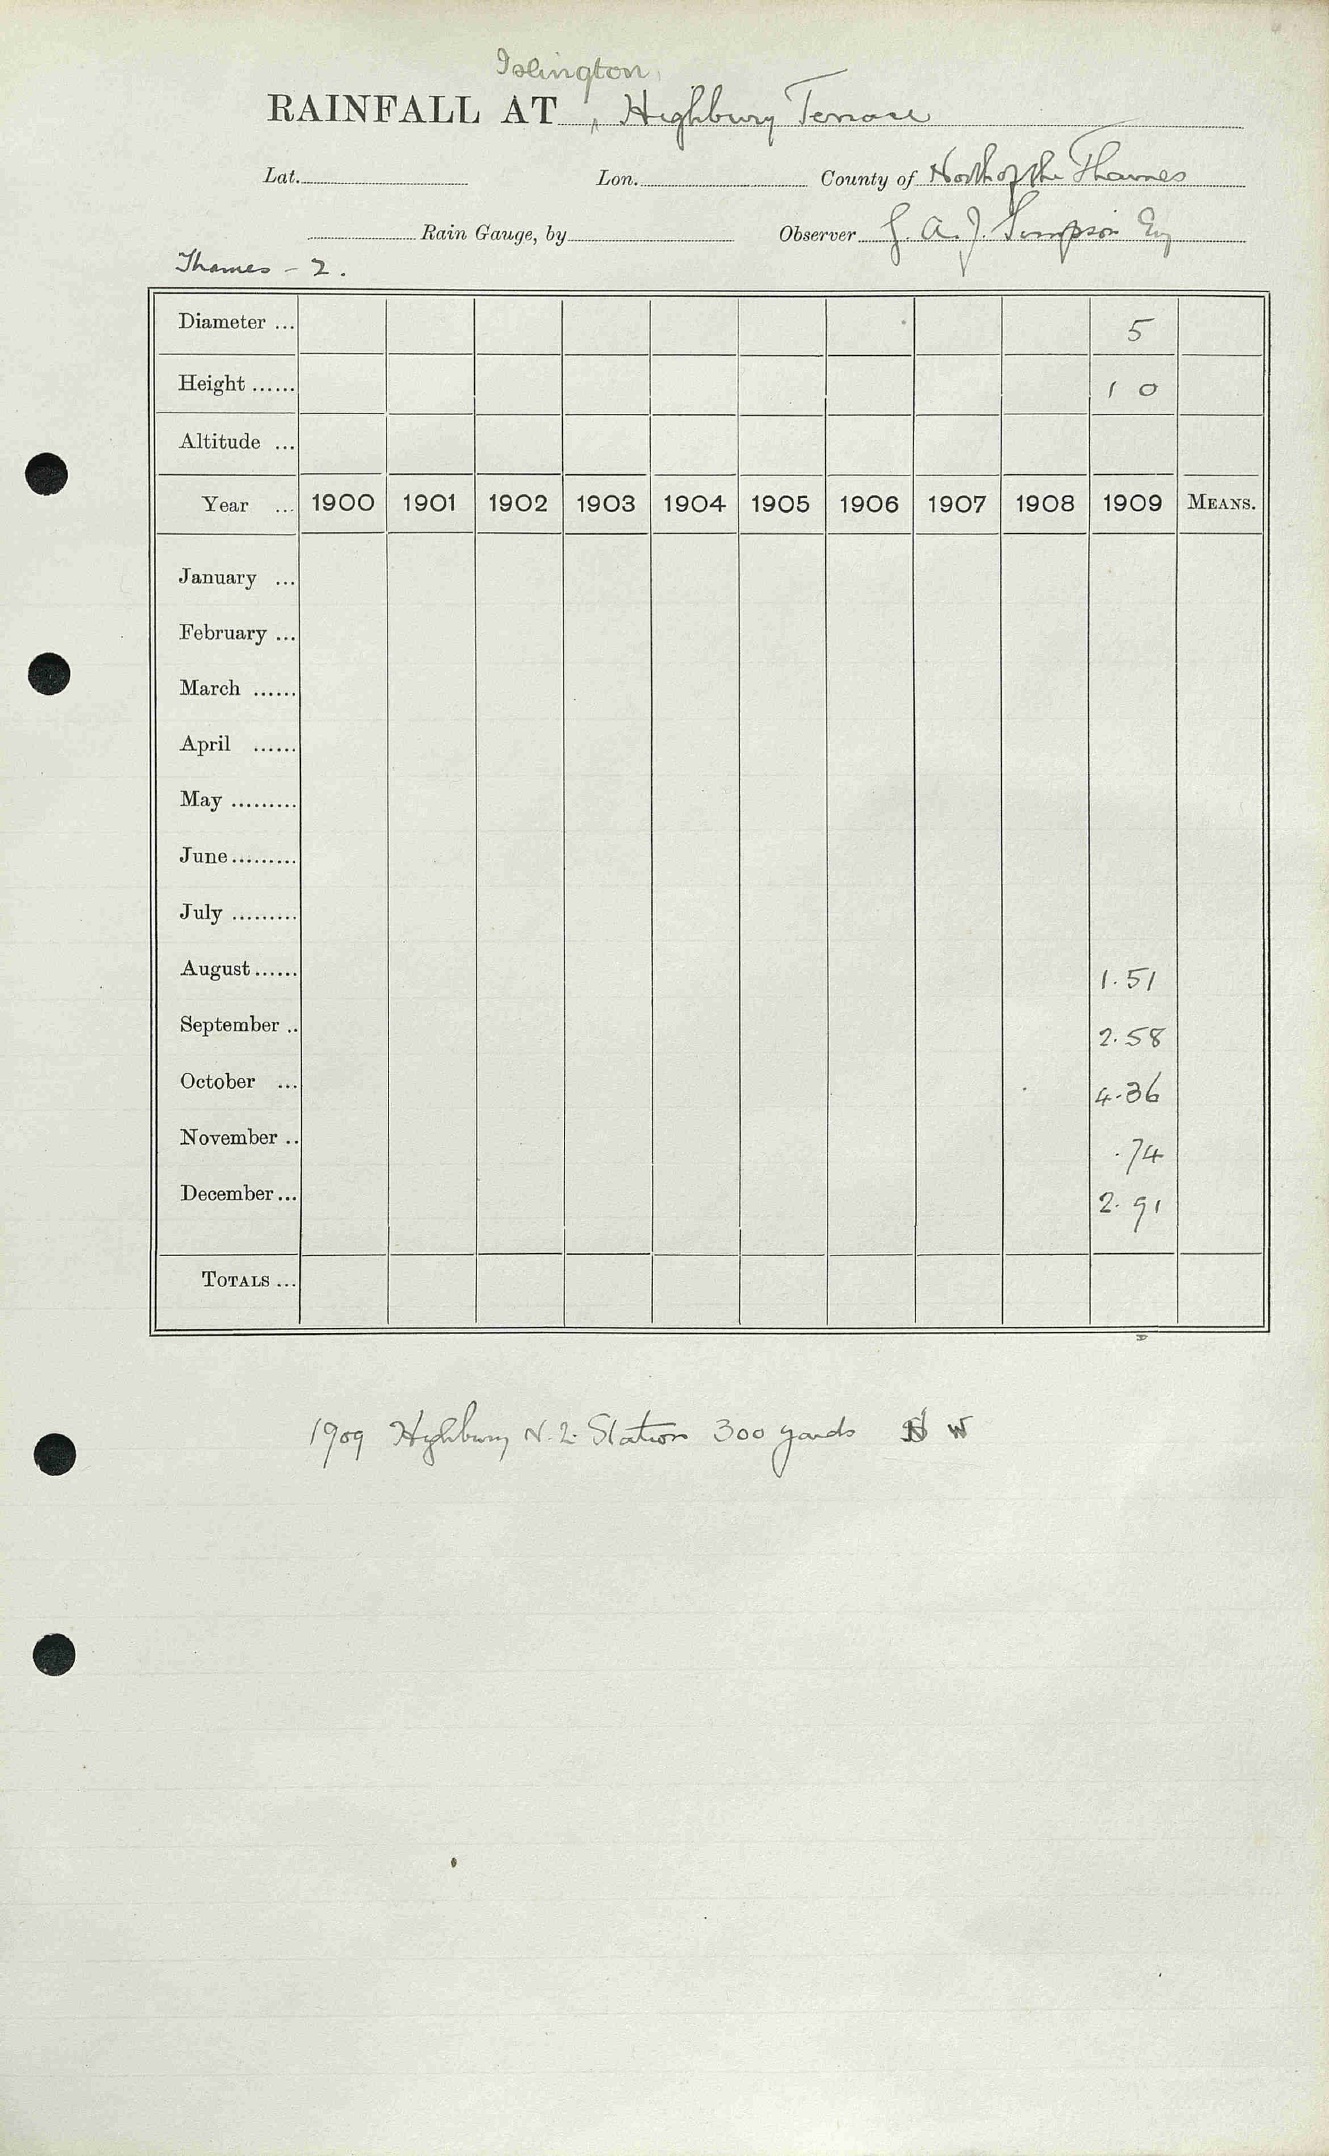 Islington,
RAINFALL AT ^ Highbury Terrace
Lat. Lon. County of North of the Thames
Rain Gauge, by Observer G. A. J. Simpson Esq
Thames - 2.
Diameter ... 5
Height ...... 1 0
Altitude ...
Year ... 1900 1901 1902 1903 1904 1905 1906 1907 1908 1909 MEANS.
January ...
February ...
March ......
April ......
May .........
June .........
July .........
August ...... 1.51
September .. 2.58
October ... 4.36
November .. .74
December ... 2.91
TOTALS ...
1909 Highbury N. L. Station 300 yards W